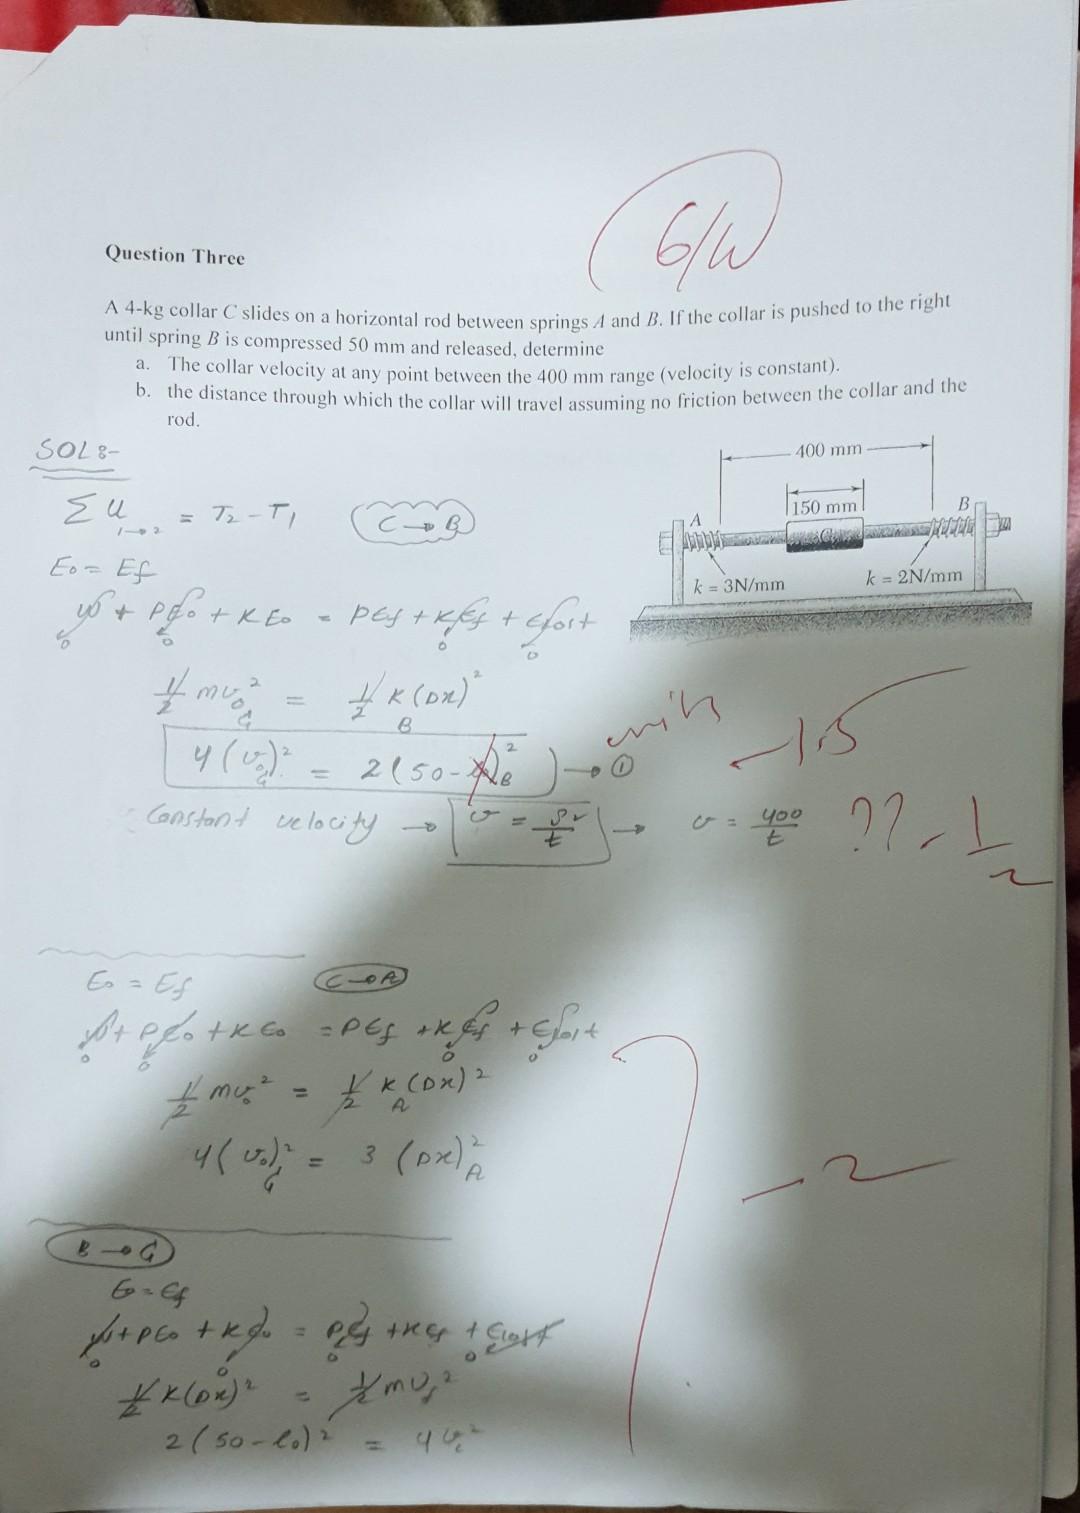 6/10
Question Three
A 4-kg collar C slides on a horizontal rod between springs A and B. If the collar is pushed to the right
until spring B is compressed 50 mm and released, determine
a. The collar velocity at any point between the 400 mm range (velocity is constant).
b. the distance through which the collar will travel assuming no friction between the collar and the
rod.
SOL:-
400 mm
150 mm
A
B
C
k = 3N/mm
k = 2N/mm
ΣU1→2 = T2 - T1
C→B
E0 = Ef
w + PE0 + KE0 = PEf + KEf + Elost
0 0 0 0
1/2 mv0C² = 1/2 KB (Dx)²
units
4(v0C)² = 2(50-l0)B² → ①
-1.5
Constant velocity → v = Dr/t → v = 400/t
?? - 1/2
E0 = Ef
C→A
w + PE0 + KE0 = PEf + KEf + Elost
0 0 0 0
1/2 mv0² = 1/2 KA (Dx)²
4(v0)C² = 3 (Dx)A²
-2
B→C
E0 = Ef
w + PE0 + KE0 = PEf + KEf + Elost
0 0 0 0
1/2 K(Dx)² = 1/2 mvf²
2(50-l0)² = 4vc²